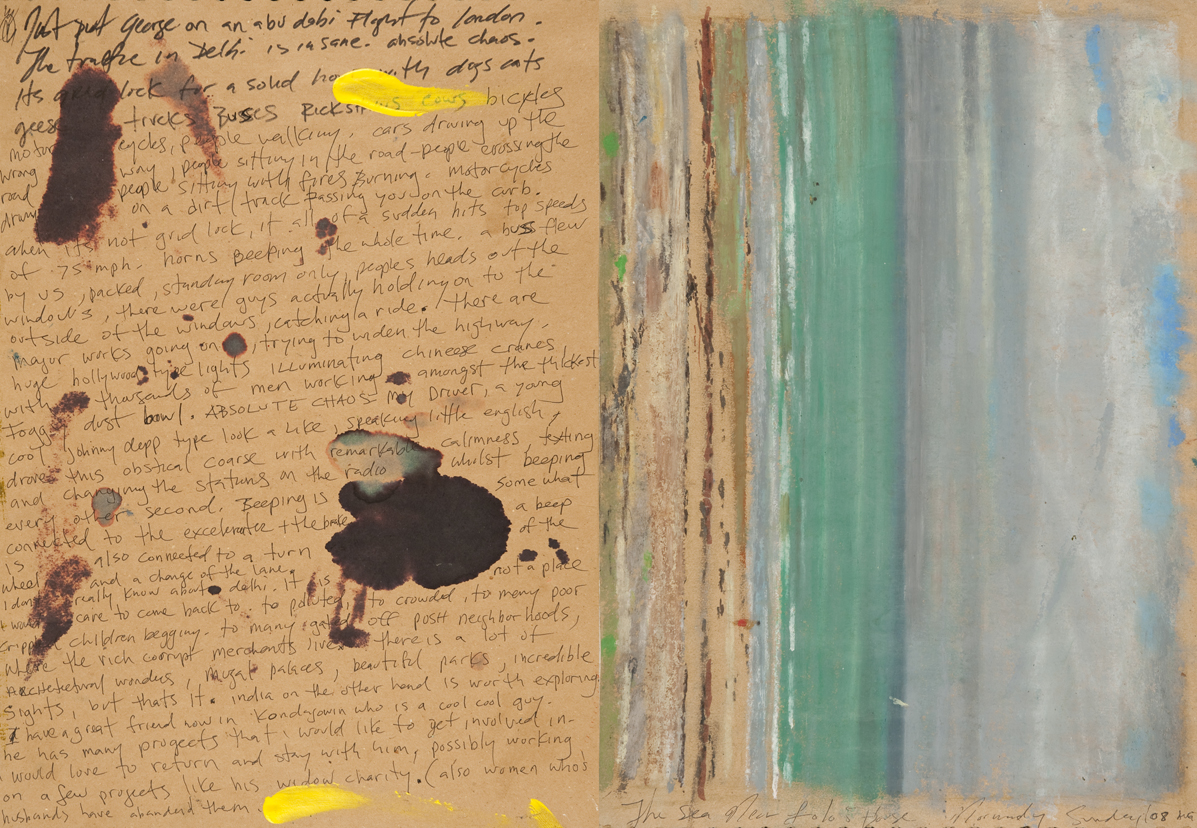 Just put george on an abu dabi flight to london.
The traffic in Delhi is insane. absolute chaos.
Its grid lock for a solid with dogs cats
geese trucks BUSSES RICKSH cows bicycles
motor cycles, people walking. cars driving up the
wrong way, people sitting in the road-people crossing the
road people sitting with fires Burning. motorcycles
on a dirt track passing you on the curb.
when its not grid lock, it all of a sudden hits top speeds
of 75 mph. horns Beeping the whole time. a buss flew
by us, packed, standing room only, peoples heads out the
windows, there were guys actually holding on to the
outside of the windows, catching a ride. there are
mayor works going on, trying to widen the highway.
huge hollywood type lights ILLUMINATING chineese cranes
with thousands of men working amongst the thickest
foggy dust bowl. ABSOLUTE CHAOS my Driver, a young
cool Johnny depp type look a like, speaking little english,
drove this obstical coarse with remarkable calimness, texting
and changing the stations on the radio whilst beeping
every other second. Beeping is some what
connected to the excelerator + the brake a beep
is also connected to a turn of the
wheel and a change of the lane.
I dont really know about delhi. It is not a place
I would care to come back to. to poluted, to crowded, to meny poor
crippled children begging. to many gated off posh neighborhoods,
where the rich corrupt merchants live. there is a lot of
Architectural wonders, mugal palaces, beautiful parks, incredible
sights, but thats it. india on the other hand is worth exploring
I have a great friend now in who is a cool cool guy.
he has many progects that i would like to get involved in-
would love to return and stay with him, possibly working
on a few progects like his widow charity. (also women who's
husbands have abandend them
The Sea Near House Normandy Sunday/08